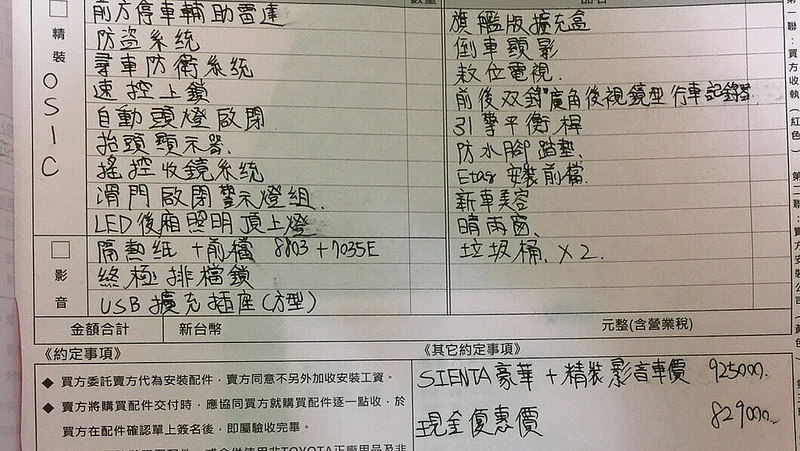 數量
品名
前方停車輔助雷達
防盜系統
尋車防衛系統
速控上鎖
自動頭燈啟閉
抬頭顯示器.
搖控收鏡系統
滑門啟閉警示燈組.
LED後廂照明頂上燈
隔熱紙 +前檔 8803+7035E
終極排檔鎖
USB擴充插座(方型)
精裝
OSIC
影音
旗艦版擴充盒
倒車顯影
数位電視.
前後双錄"廣角後視鏡型行車記錄器
引擎平衡桿
防水腳踏墊.
Etag安裝前檔.
新車美容
晴雨窗、
垃圾桶、X2.
第一聯：買方收執(紅色)
第二聯：賣方安裝公司
金額合計 新台幣 元整(含營業稅)
《約定事項》
◆ 買方委託賣方代為安裝配件，賣方同意不另外加收安裝工資。
◆ 賣方將購買配件交付時，應協同買方就購買配件逐一點收，於
買方在配件確認單上簽名後，即屬驗收完畢。
《其它約定事項》
SIENTA豪華+精裝影音車價 925000.
現金優惠價 829000.